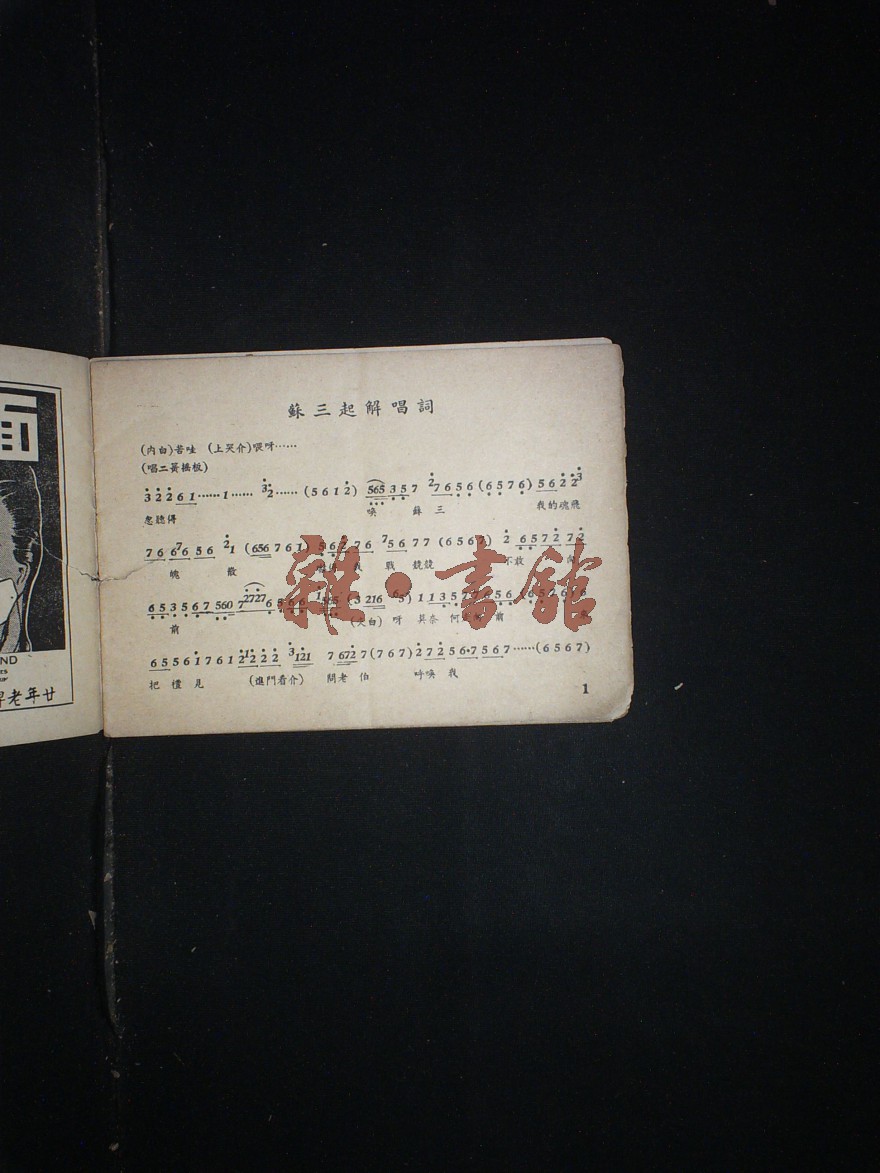 蘇三起解唱詞
(內白)苦哇 (上哭介)喂呀……
(唱二黃搖板)
3 2 2 6 1……1…… 3 2……(5 6 1 2) 565 3 5 7 2 7 6 5 6 (6 5 7 6) 5 6 2 2 3
忽聽得 喚 蘇 三 我的魂飛
7 6 6 7 6 5 6 2 1 (656 7 6 1) 5 6 2 7 6 7 5 6 7 7 (6 5 6 7) 2 6 5 7 2 7 2
魄 散 我 戰 兢兢 不敢 向
6 5 3 5 6 7 560 7 2727 6
前 (夫白) 呀 莫奈何 前
6 5 5 6 1 7 6 1 2 1 2 2 2 3 121 7 672 7 (7 6 7) 2 7 2 5 6·7 5 6 7……(6 5 6 7)
把 禮 見 (進門看介) 問老 伯 呼喚 我
1
雜·書館
ND
廿年老